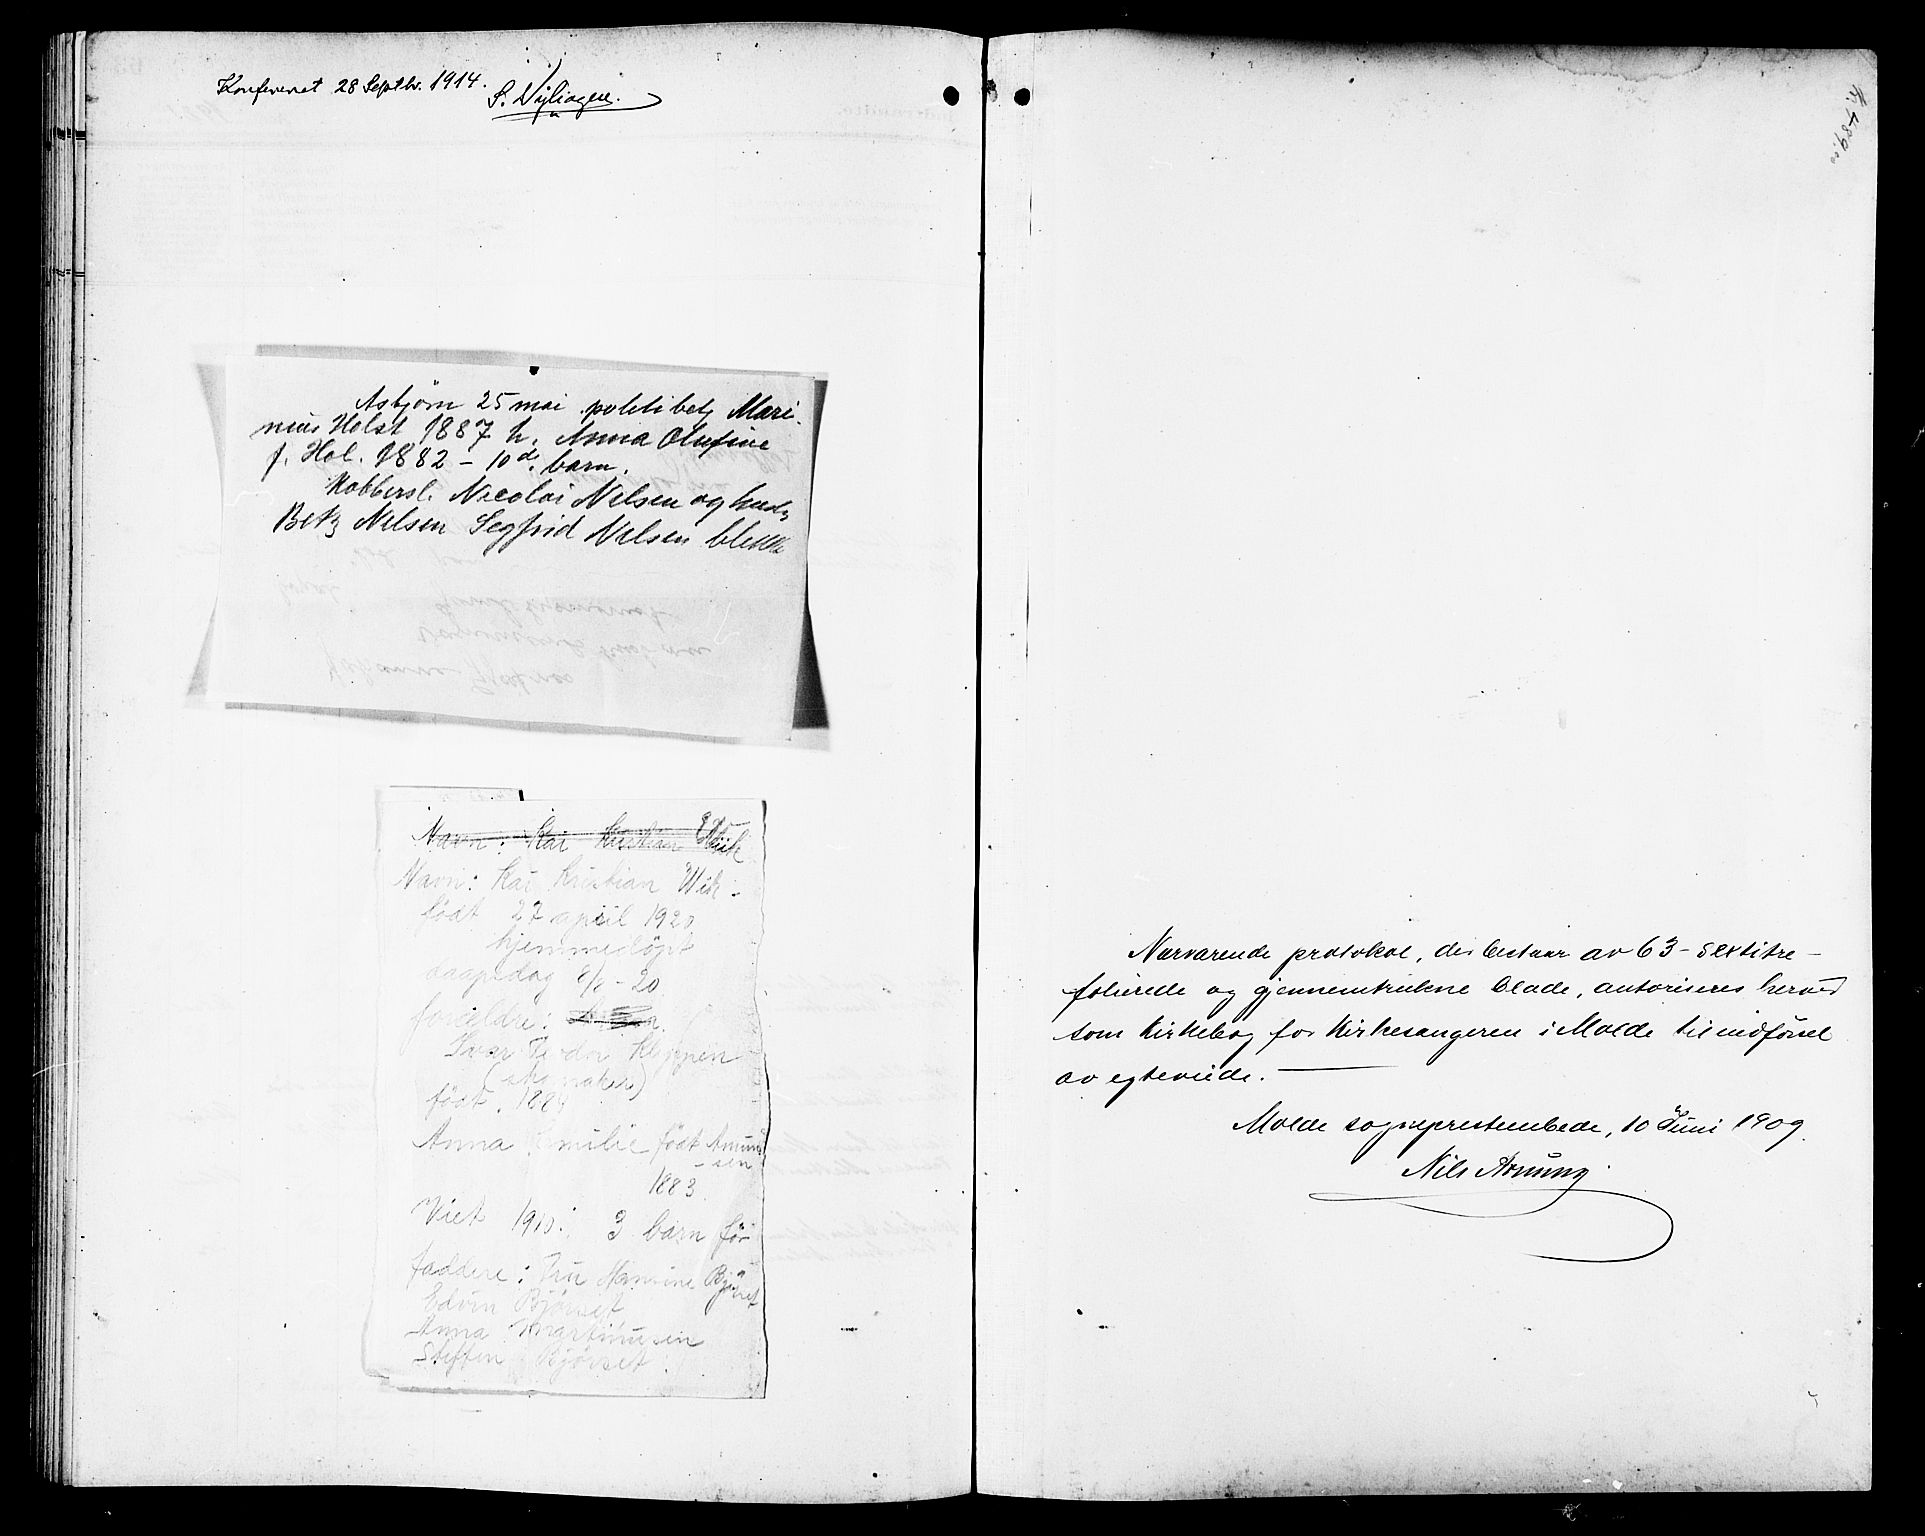 Konfereret 28 Septbr. 1914.
Asbjørn 25 mai politibetj Mari-
nius Holst 1887 h. Anna Olufine
f. Hol. 1882 - 10de barn.
Kobbersl. Nicolai Nilsen og hustr
Betz Nilsen Segfrid Nilsen blikk
Navn: Kai Kristian Wik
Navn: Kai Kristian Wik -
født 27 april 1920
hjemmedøpt
daapsdag 8/8 - 20
foreldre:
Ivar Peder
født. 188
Anna Emilie født Amund
- sen
1883
Viet 1910: 3 barn før
faddere: Fru Bjørset
Edvin Bjørset
Anna Martinusen
Steffen Bjørset
Nærværende protokol, der bestaar av 63 - sextitre -
folierede og gjennemtrukne blade, autoriseres herved
som kirkebog for kirkesangeren i Molde til indførsel
av egteviede.
Molde sogneprestembede, 10 Juni 1909.
Nils Arnung